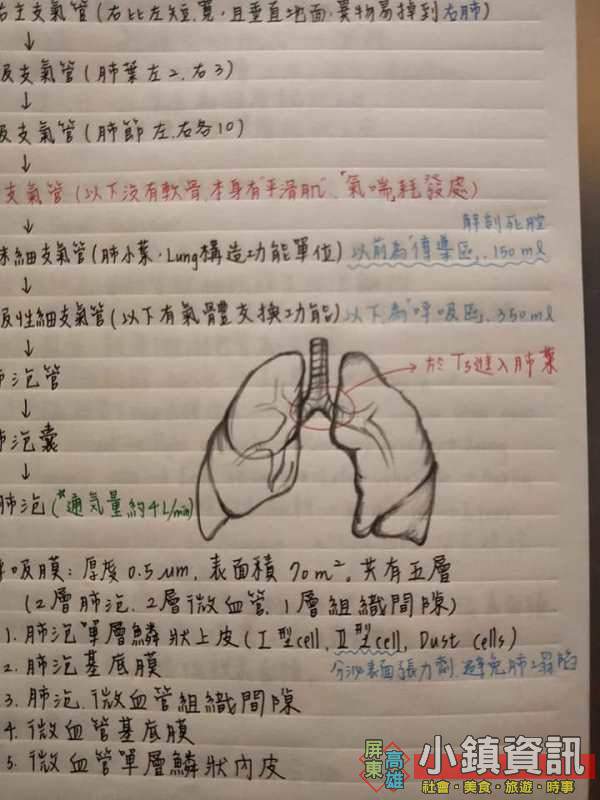 主支氣管(右比左短.寬.且垂直地面.異物易掉到右肺)
↓
支氣管(肺葉左2.右3)
↓
支氣管(肺節左.右各10)
↓
支氣管(以下沒有軟骨.本身有"平滑肌"、"氣喘耗發處)
↓
解剖死腔
末細支氣管(肺小葉.Lung構造功能單位)以前為"傳導區.150 ml
↓
吸性細支氣管(以下有氣體交換功能)以下.為"呼吸區.350ml
↓
肺泡管
於T5進入肺葉
↓
肺泡囊
↓
肺泡(*通気量約4L/min)
呼吸膜:厚度0.5μm.表面積70m².共有五層
(2層肺泡.2層微血管.1層組織間隙)
1.肺泡單層鱗狀上皮(I型cell.II型cell, Dust cells)
2.肺泡基底膜
分泌表面張力劑.避免肺塌陷
3.肺泡.微血管組織間隙
4.微血管基底膜
5.微血管單層鱗狀內皮
屏東高雄
小鎮資訊
社會・美食・旅遊・時事